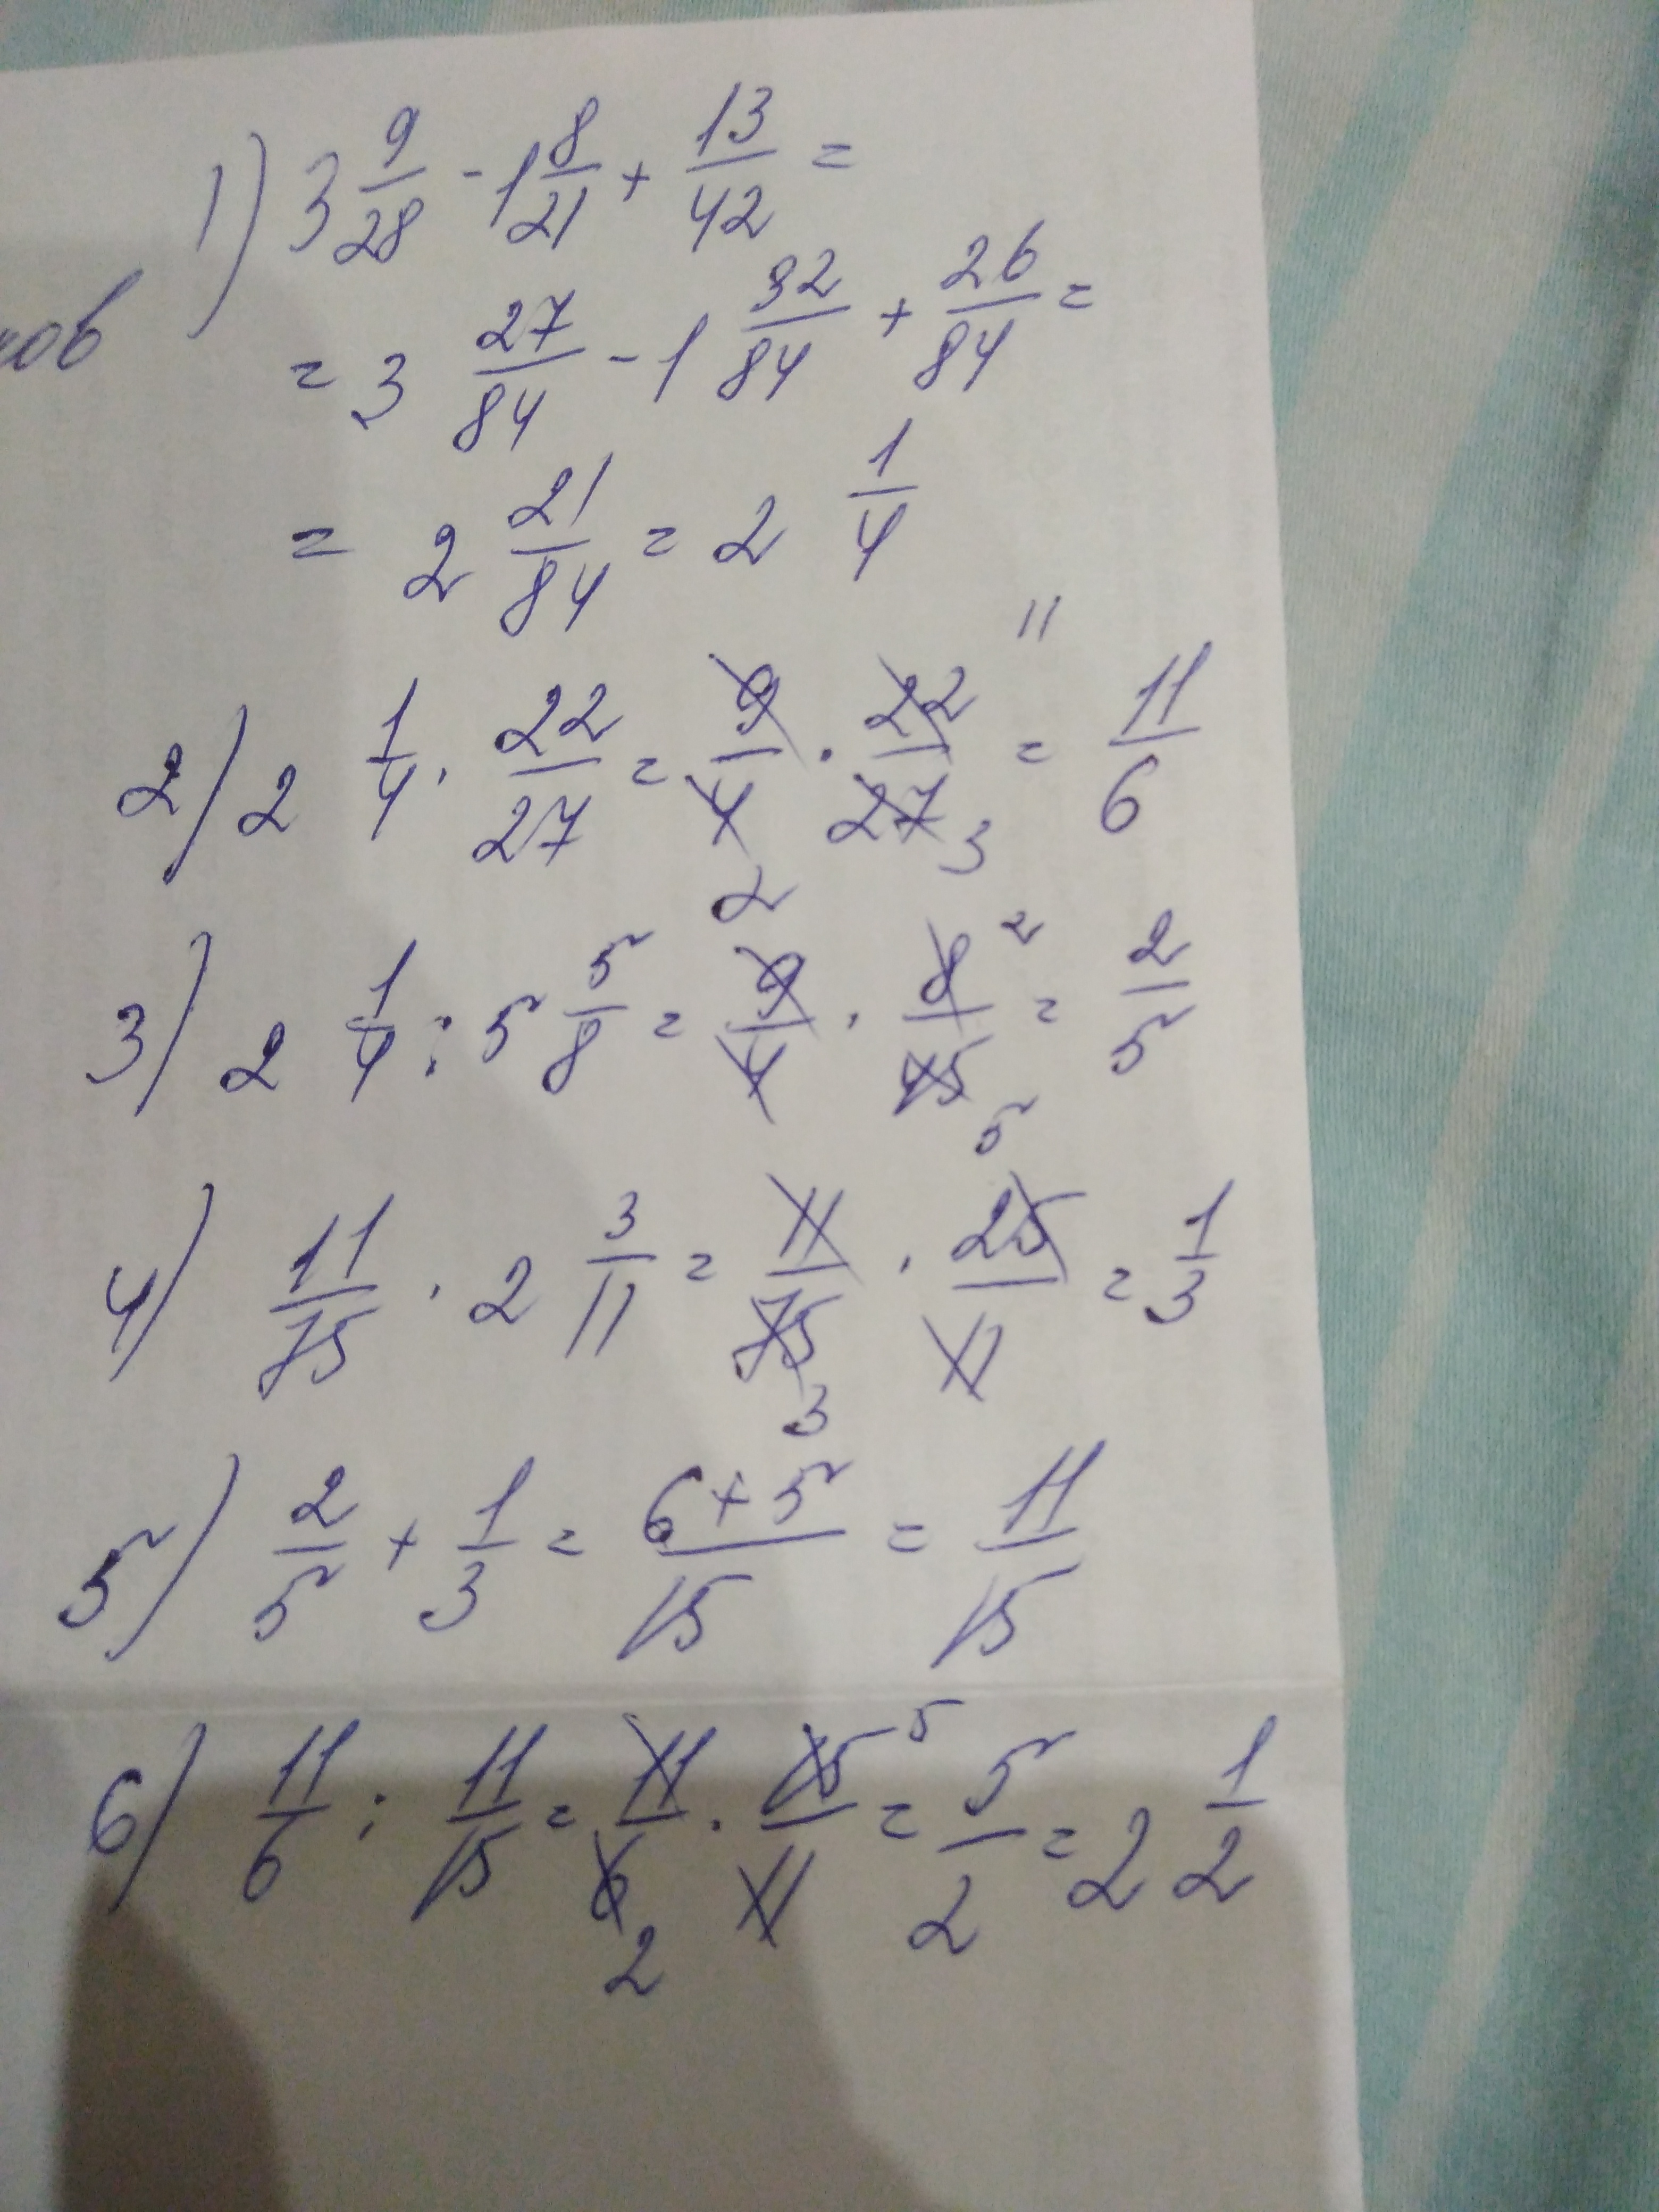 1) 3 9/28 - 1 8/21 + 13/42 =
= 3 27/84 - 1 32/84 + 26/84 =
= 2 21/84 = 2 1/4
2) 2 1/4 · 22/27 = 9/4 2 · 22 11/27 3 = 11/6
3) 2 1/4 : 5 5/8 = 9/4 · 8 2/45 5 = 2/5
4) 11/75 · 2 3/11 = 11/75 3 · 25/11 = 1/3
5) 2/5 + 1/3 = 6+5/15 = 11/15
6) 11/6 : 11/15 = 11/6 2 · 15 5/11 = 5/2 = 2 1/2